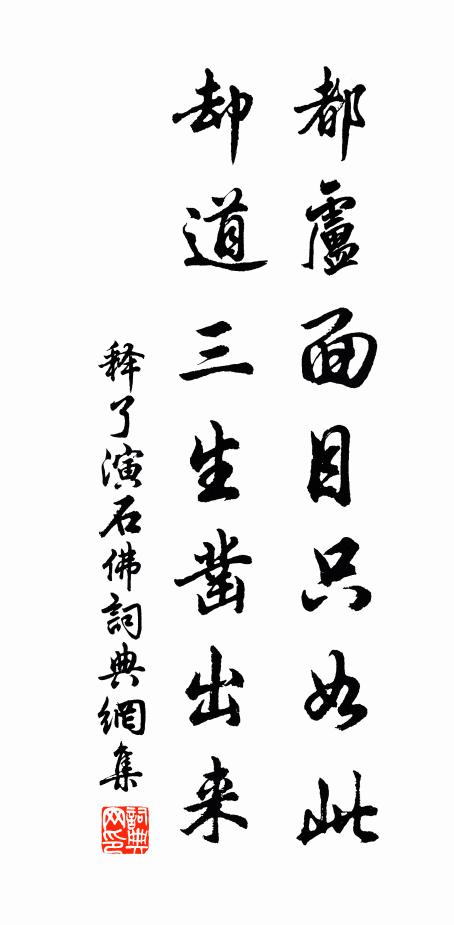 都廬面目只如此
却道三生凿出来
释了演石佛詞典網集
詞典网印